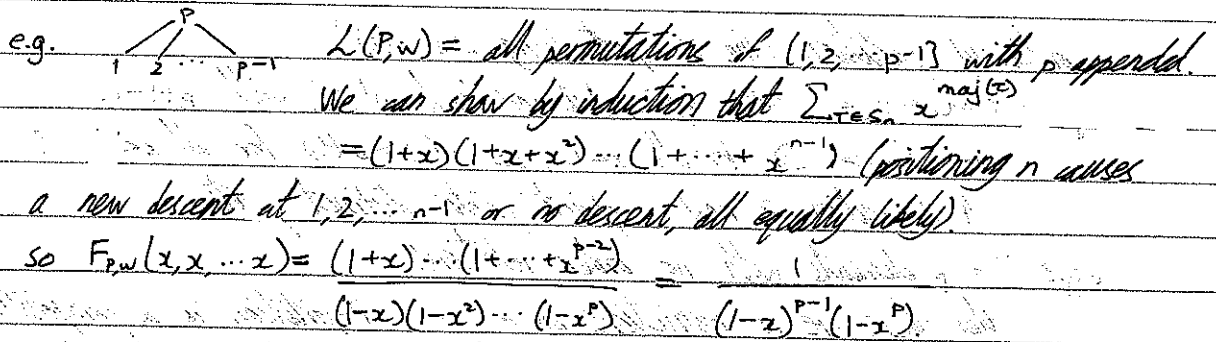 e.g. p L(P,w) = all permutations of {1,2,...p-1} with p appended.
1 2 ... p-1
We can show by induction that Σ_{τ∈S_n} x^{maj(τ)}
= (1+x)(1+x+x²)...(1+...+x^{n-1}) (positioning n causes
a new descent at 1,2,... n-1 or no descent, all equally likely).
so F_{P,w}(x,x,...x) = (1+x)...(1+...+x^{p-2}) / (1-x)(1-x²)...(1-x^p) = 1 / (1-x)^{p-1}(1-x^p).